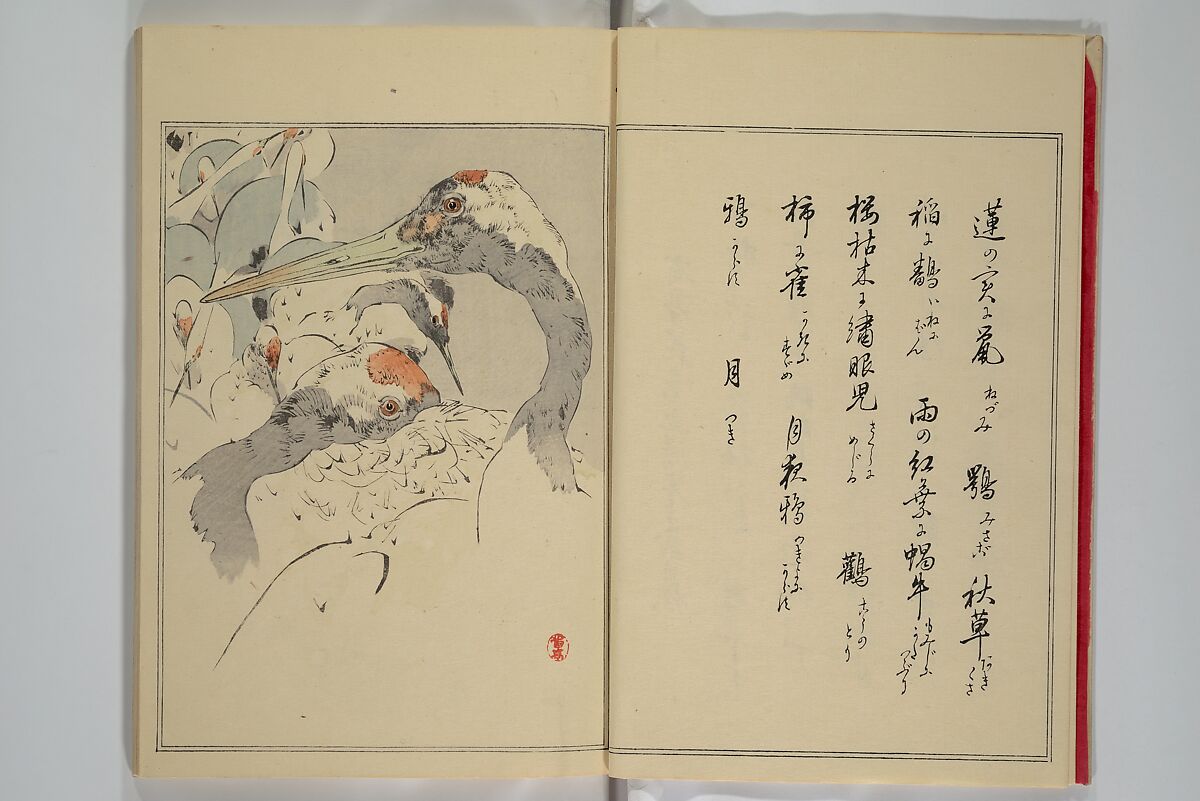 蓮の実に鼠 ねづみ 鶚 みさご 秋草 あきくさ
稲に鷭 いねにばん 雨の紅葉に蝸牛 もみぢにかたつぶり
桜枯木に繍眼児 さくらにめじろ 鸛 こうのとり
柿に雀 かきにすゞめ 月夜鴉 つきよにからす
鴉 からす 月 つき
省亭